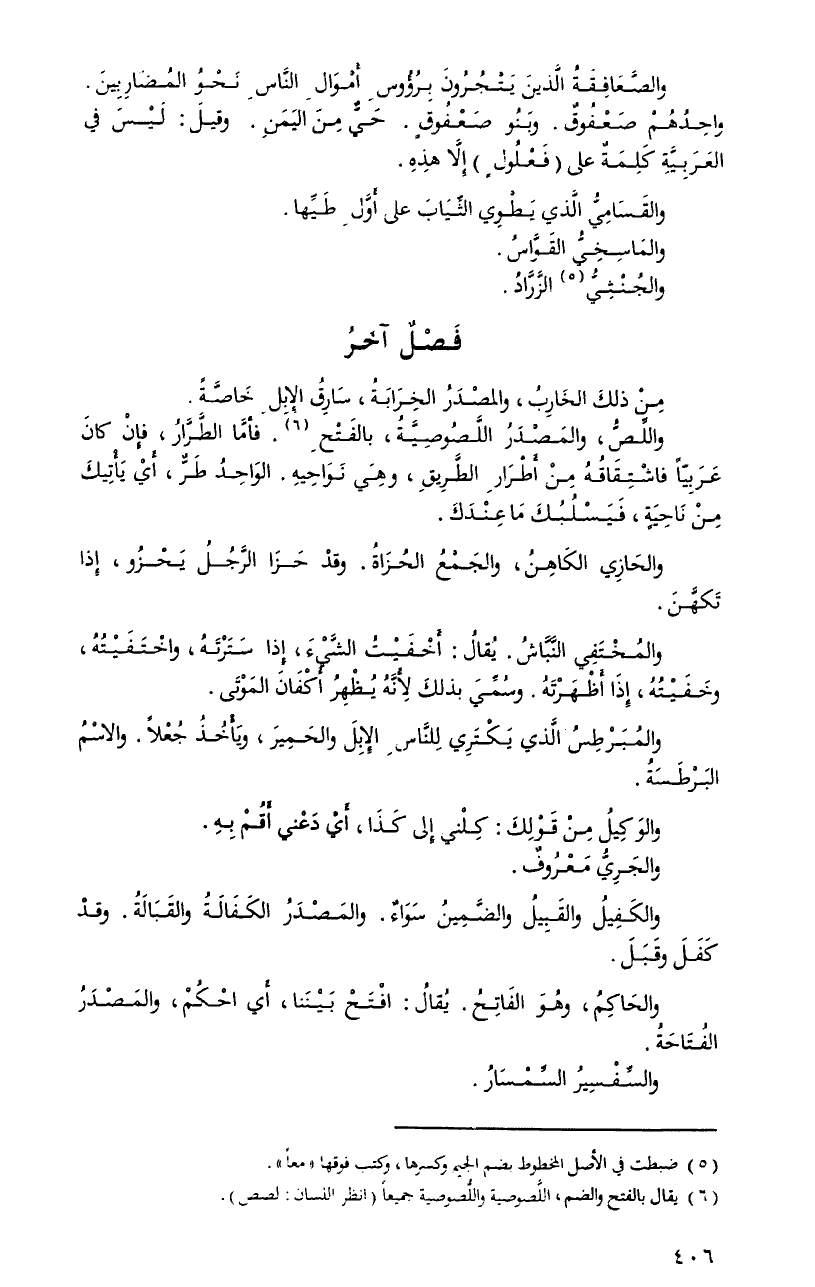 والصَّعَافِقَةُ الَّذينَ يَتْجُرُونَ بِرُؤُوسِ أَمْوَالِ النَّاسِ نَحْوُ المُضَارِبينَ .
واحِدُهُمْ صَعْفُوقٌ . وبَنُو صَعْفُوقٍ . حَيٌّ مِنَ اليَمَنِ . وقيلَ : لَيْسَ في
العَرَبِيَّةِ كَلِمَةٌ على ( فَعْلُولٍ ) إلَّا هذِهِ .
والقَسَامِيُّ الَّذي يَطْوِي الثِّيَابَ على أَوَّلِ طَيِّها .
والمَاسِخِيُّ القَوَّاسُ .
والجُنْثِيُّ (٥) الزَّرَّادُ .
فَصْلٌ آخَرُ
مِنْ ذلكَ الخَارِبُ ، والمَصْدَرُ الخِرَابَةُ ، سَارِقُ الإبِلِ خَاصَّةً .
واللِّصُّ ، والمَصْدَرُ اللَّصُوصِيَّةُ ، بالفَتْحِ (٦) . فأمَّا الطَّرَّارُ ، فإنْ كانَ
عَرَبِيّاً فاشْتِقَاقُهُ مِنْ أَطْرَارِ الطَّريقِ ، وهيَ نَوَاحِيهِ . الوَاحِدُ طَرٌّ ، أيْ يَأْتِيكَ
مِنْ نَاحِيَةٍ ، فَيَسْلُبُكَ مَا عِنْدَكَ .
والحَازِي الكَاهِنُ ، والجَمْعُ الحُزَاةُ . وقدْ حَزَا الرَّجُلُ يَحْزُو ، إذا
تَكَهَّنَ .
والمُخْتَفِي النَّبَّاشُ . يُقالُ : أَخْفَيْتُ الشَّيْءَ ، إذا سَتَرْتَهُ ، واخْتَفَيْتُهُ ،
وخَفَيْتُهُ ، إذَا أَظْهَرْتَهُ . وسُمِّيَ بذلكَ لأنَّهُ يُظْهِرُ أَكْفَانَ المَوْتَى .
والمُبَرْطِسُ الَّذي يَكْتَرِي لِلنَّاسِ الإبِلَ والحَميرَ ، ويَأْخُذُ جُعْلاً . والاسْمُ
البَرْطَسَةُ .
والوَكِيلُ مِنْ قَوْلِكَ : كِلْني إلى كَذَا ، أيْ دَعْني أَقُمْ بِهِ .
والجَرِيُّ مَعْرُوفٌ .
والكَفِيلُ والقَبِيلُ والضَّمِينُ سَوَاءٌ . والمَصْدَرُ الكَفَالَةُ والقَبَالَةُ . وقدْ
كَفَلَ وقَبَلَ .
والحَاكِمُ ، وهُوَ الفَاتِحُ . يُقالُ : افْتَحْ بَيْنَنا ، أي احْكُمْ ، والمَصْدَرُ
الفُتَاحَةُ .
والسِّفْسِيرُ السِّمْسَارُ .
( ٥ ) ضبطت في الأصل المخطوط بضم الجيم وكسرها ، وكتب فوقها « معاً » .
( ٦ ) يقال بالفتح والضم ، اللَّصوصية واللُّصوصية جميعاً ( انظر اللسان : لصص ) .
٤٠٦